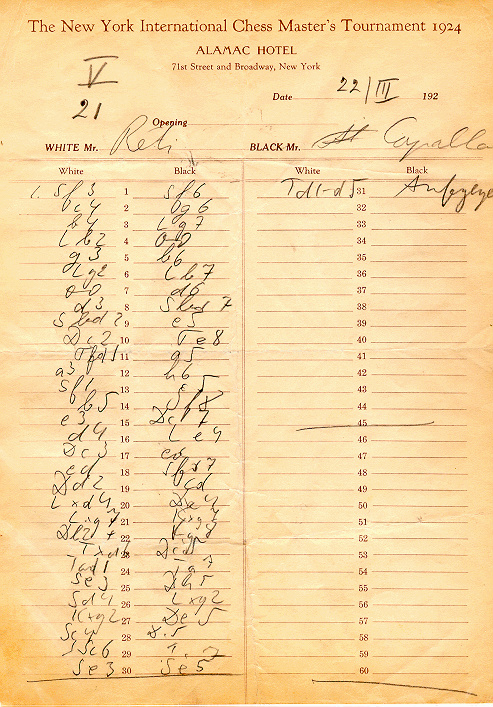 The New York International Chess Master's Tournament 1924
ALAMAC HOTEL
71st Street and Broadway, New York
V
21
Date 22/III 192
Opening
WHITE Mr. Réti BLACK Mr.
White Black White Black
1. Sf3 1 Sf6 Td1-d5 31
c4 2 g6 32
b4 3 Lg7 33
Lb2 4 0-0 34
g3 5 b6 35
Lg2 6 Lb7 36
0-0 7 d6 37
d3 8 Sbd7 38
Sbd2 9 e5 39
Dc2 10 Te8 40
Tfd1 11 a5 41
a3 12 h6 42
Sf1 13 c5 43
b5 14 44
e3 15 Dc7 45
d4 16 Le4 46
Dc3 17 47
18 48
Dd2 19 cd 49
Lxd4 20 50
Lxg7 21 Kxg7 51
Db2+ 22 Kg8 52
Txd6 23 Dc5 53
Tad1 24 54
Se3 25 Dh5 55
Sd4 26 Lxg2 56
Kxg2 27 De5 57
Sc4 28 58
Sc6 29 59
Se3 30 Se5 60